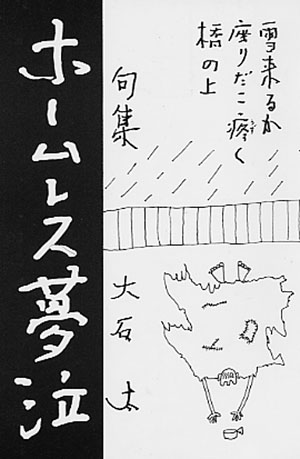 雪来るか
座りだこ疼く
橋の上
句集
大石 太
ホームレス夢泣